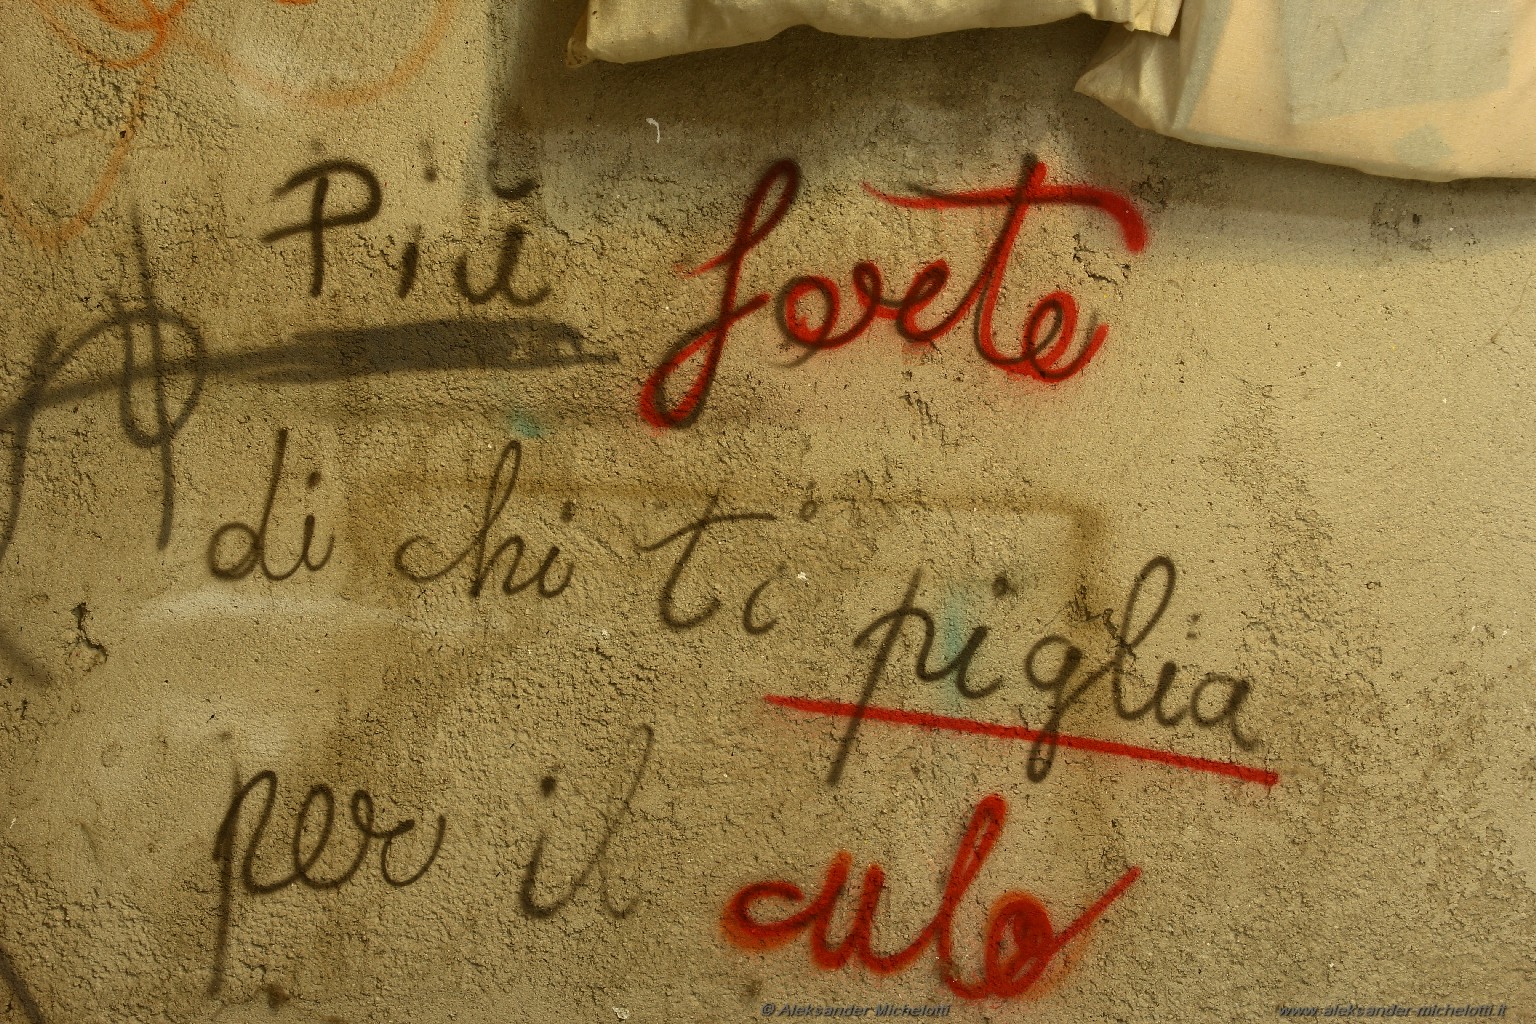 Più forte
di chi ti piglia
per il culo
© Aleksander Michelotti
www.aleksander-michelotti.it